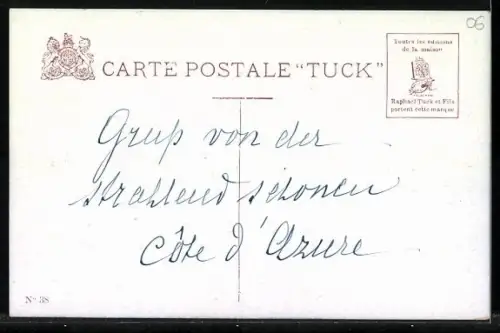 06
Toutes les éditions
de la maison
CARTE POSTALE "TUCK"
Raphael Tuck et Fils
portent cette marque
Gruß von der
strahlend schönen
Côte d'Azure
No 38